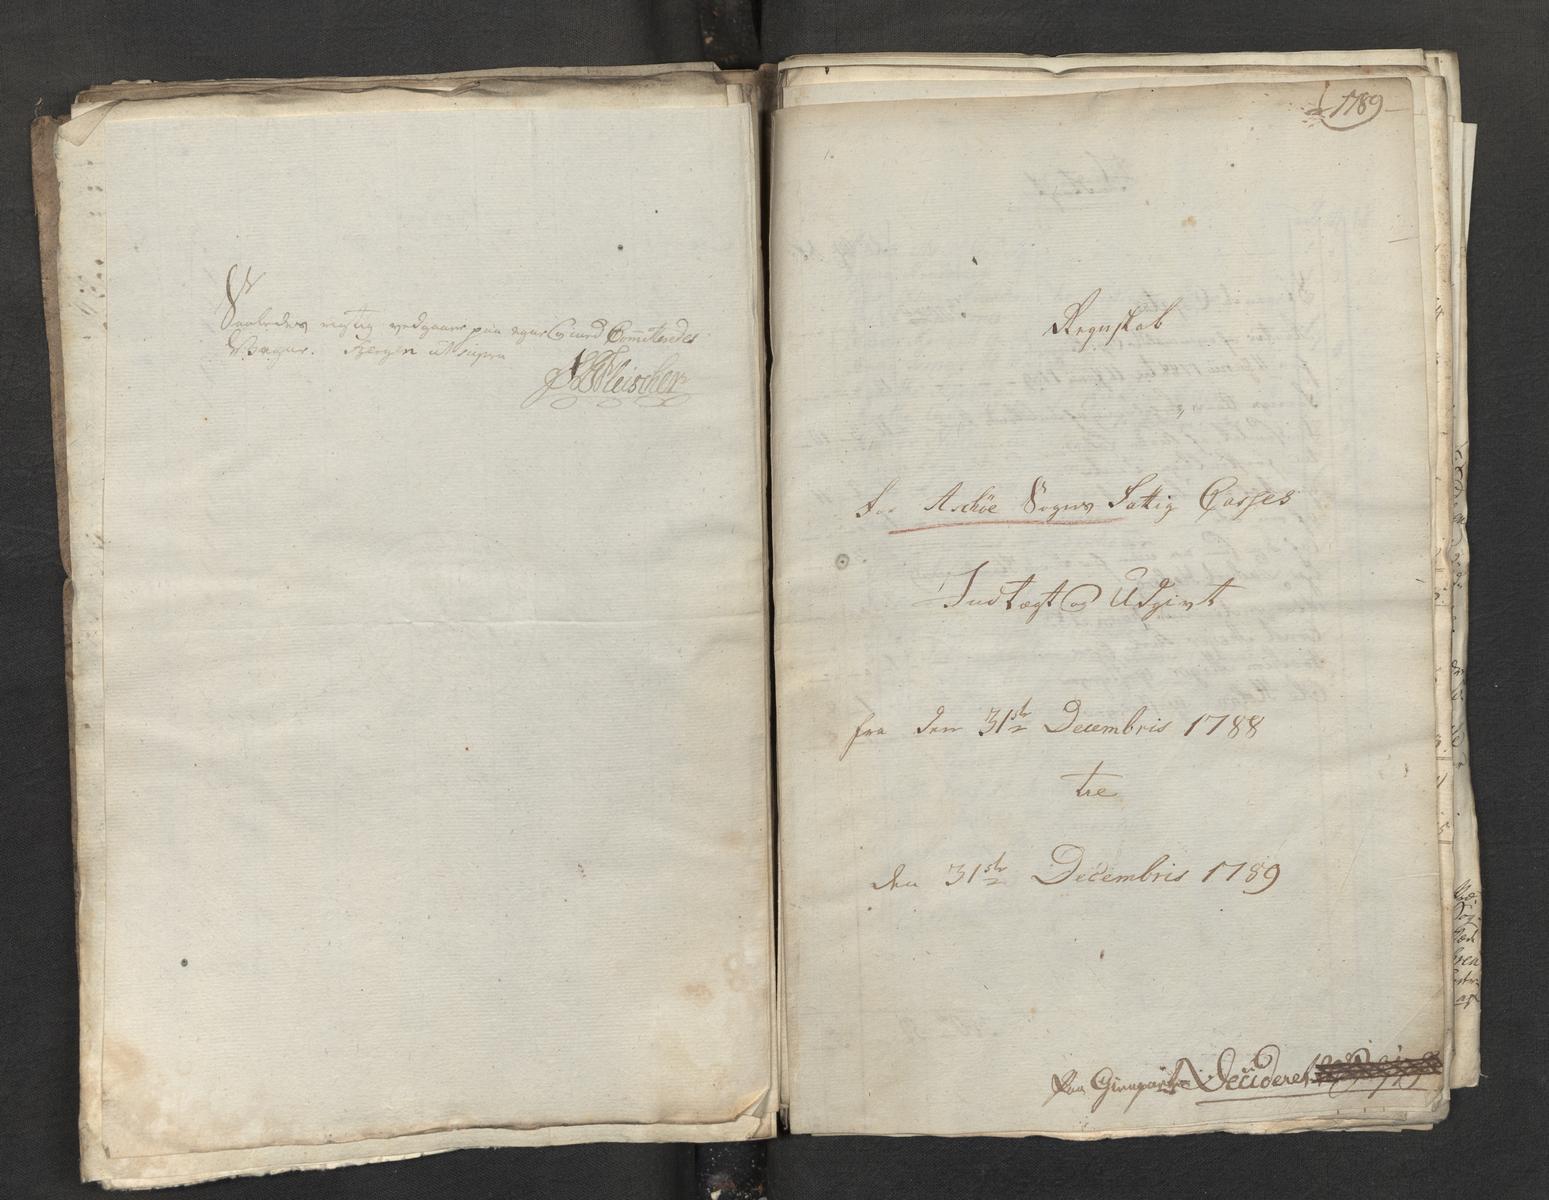 Saaledes rigtig vedgaaes paa egne og med Committeredes
Vegne. Bergen ut supra
Fleischer
1789
Regnskab
for Askøe Sogns Fattig Casses
Indtægt og Udgivt
fra den 31te Decembris 1788
til
den 31te Decembris 1789
Paa Gienparten Decideret